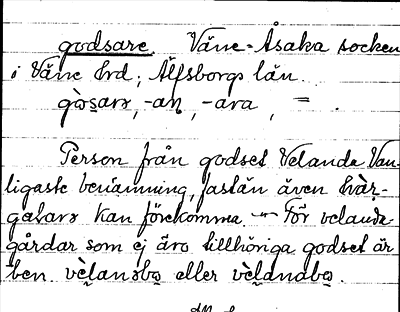 godsare. Väne-Åsaka socken
i Väne hrd; Älfsborgs län.
gòsarə, -an, -ara, =
Person från godset Velanda. Van-
ligaste benämning, fastän även hvàr-
gasarə kan förekomma. — För velanda-
gårdar som ej äro tillhöriga godset är
ben. vèlanəbə eller vèlanabə.